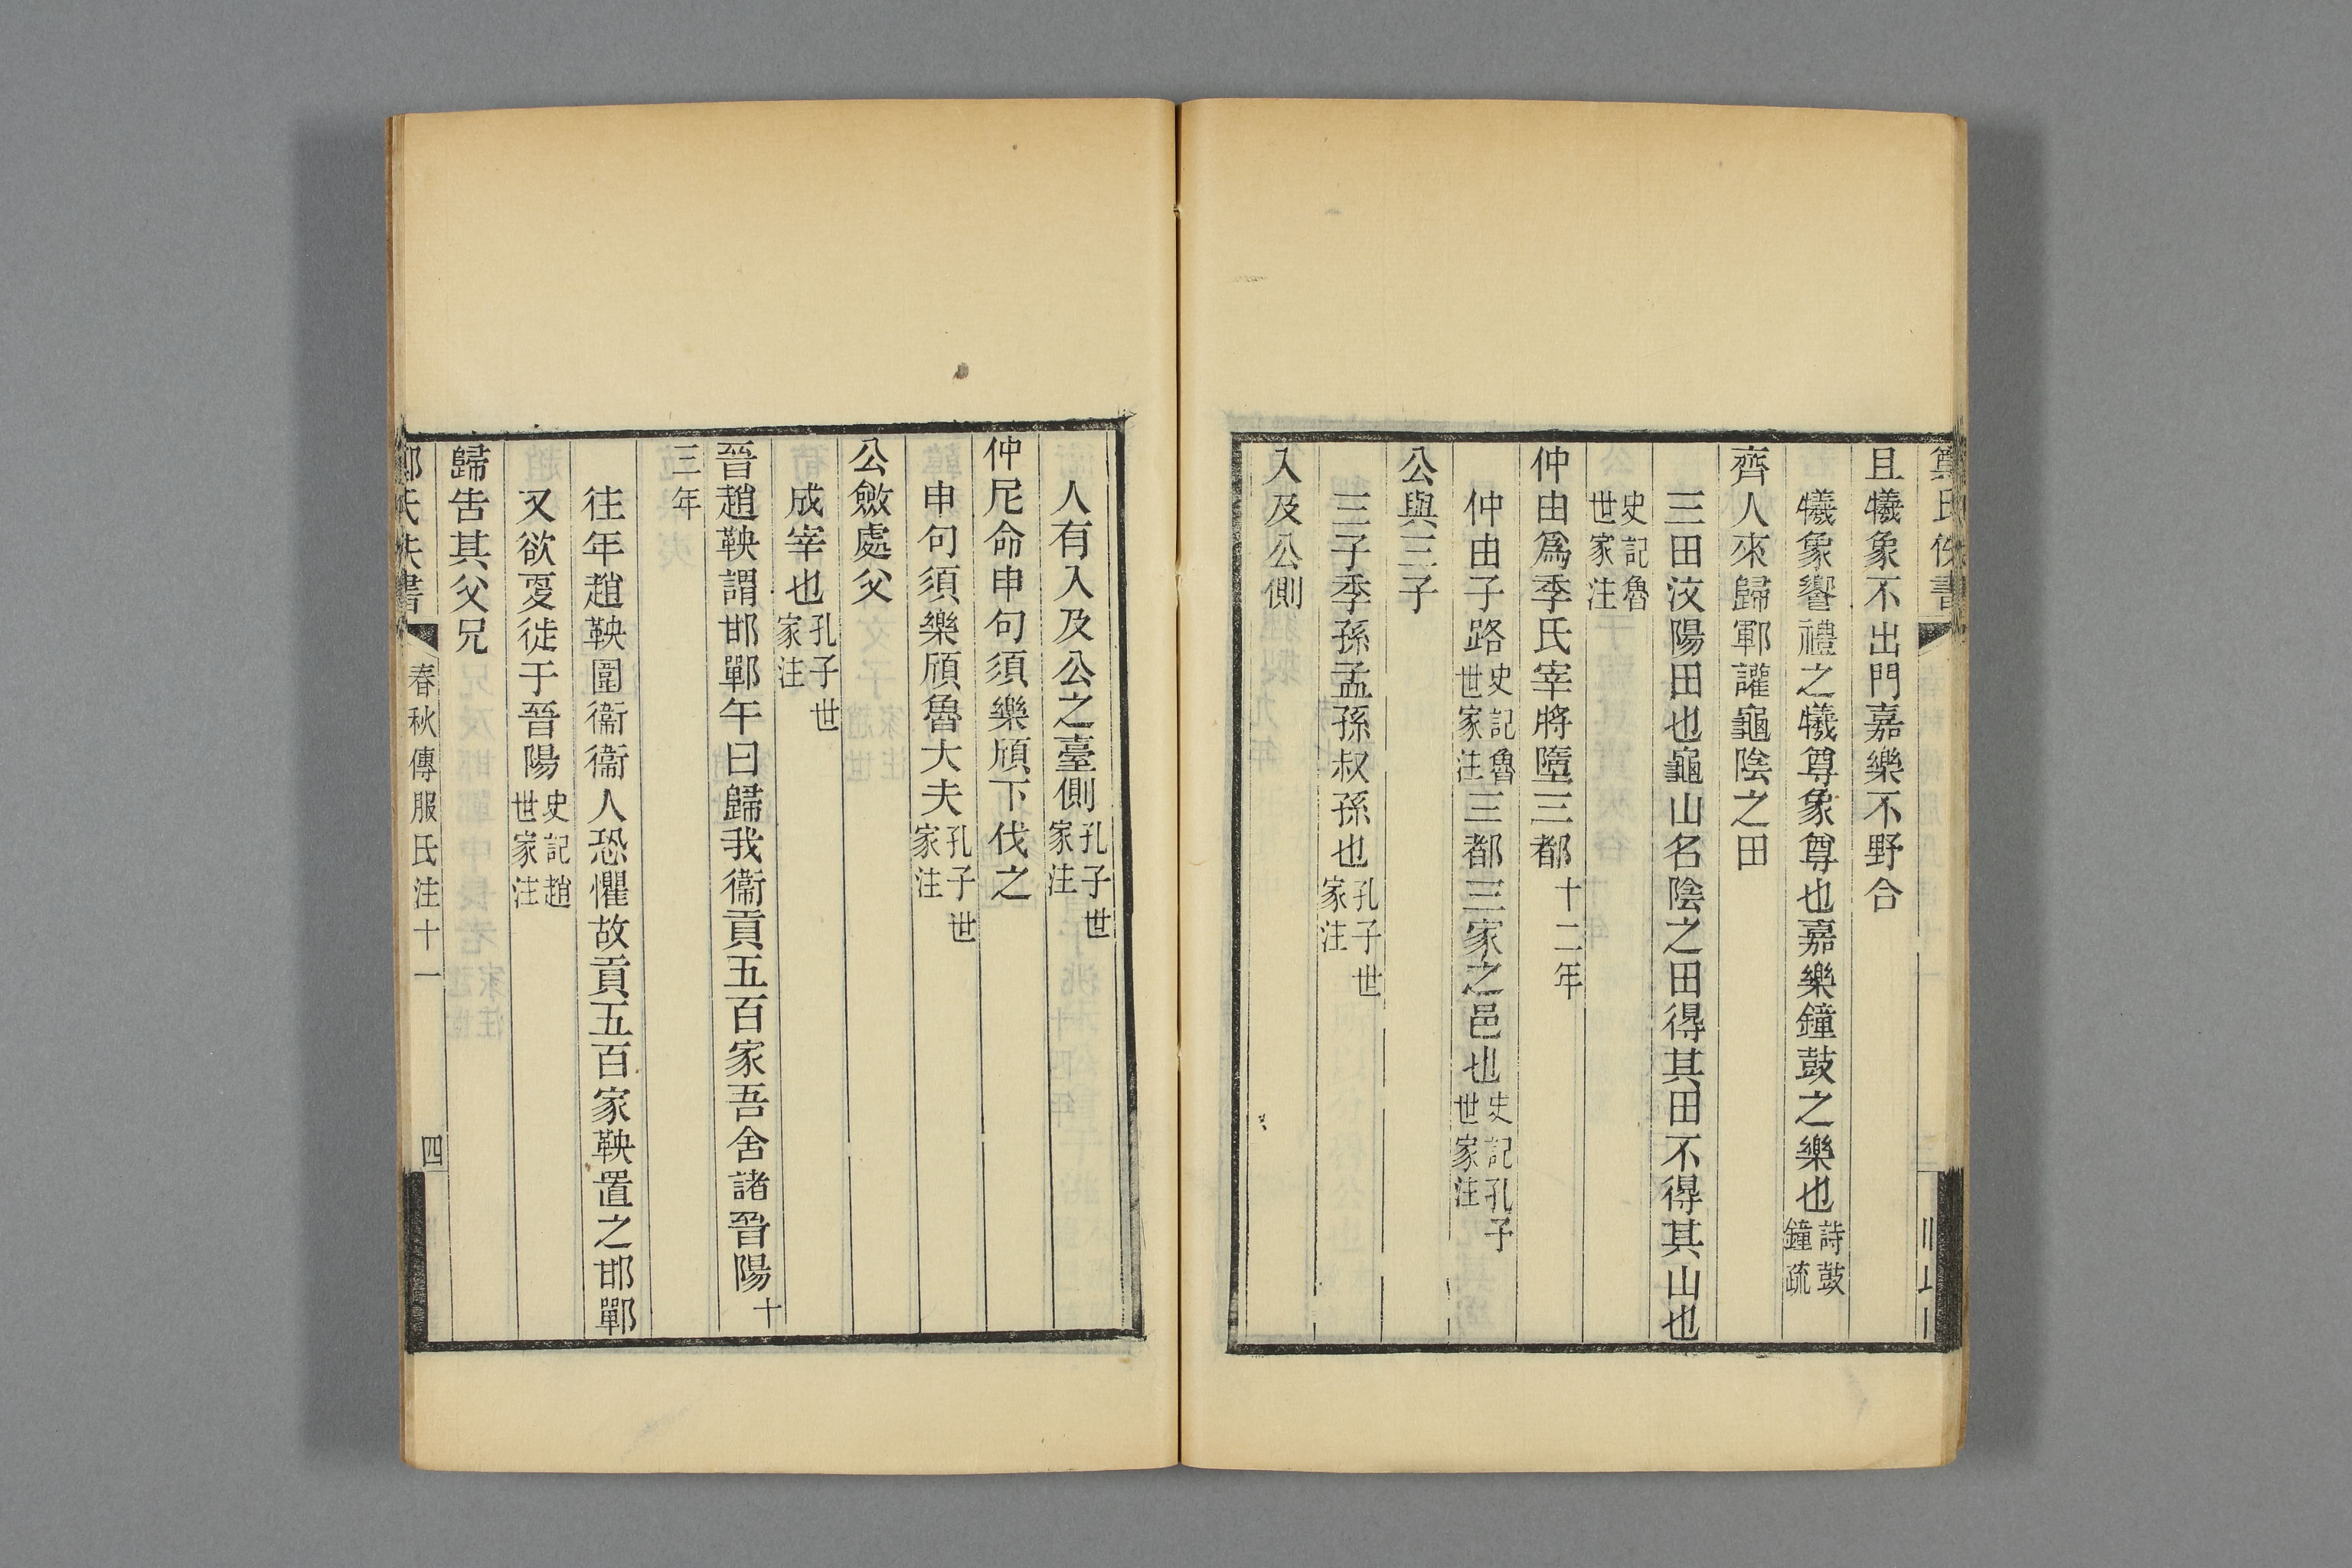 且犧象不出門嘉樂不野合
犧象饗禮之犧尊象尊也嘉樂鐘鼓之樂也詩鼓鐘疏
齊人來歸鄆讙龜陰之田
三田汶陽田也龜山名陰之田得其田不得其山也
史記魯世家注
仲由爲季氏宰將墮三都十二年
仲由子路史記魯世家注三都三家之邑也史記孔子世家注
公與三子
三子季孫孟孫叔孫也孔子世家注
入及公側
人有入及公之臺側孔子世家注
仲尼命申句須樂頎下伐之
申句須樂頎魯大夫孔子世家注
公斂處父
成宰也孔子世家注
晉趙鞅謂邯鄲午曰歸我衞貢五百家吾舍諸晉陽十
三年
往年趙鞅圍衞衞人恐懼故貢五百家鞅置之邯鄲
又欲更徙于晉陽史記趙世家注
歸告其父兄
春秋傳服氏注十一
四